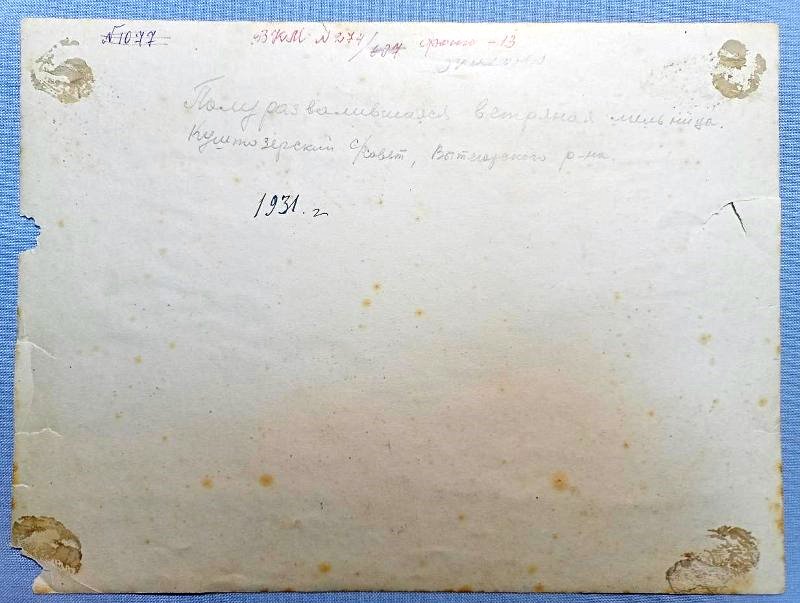 №1077 ВКМ №277/107 фото - 13
Полуразвалившаяся ветряная мельница.
Куштозерский с/совет, Вытегорского р-на.
1931. г